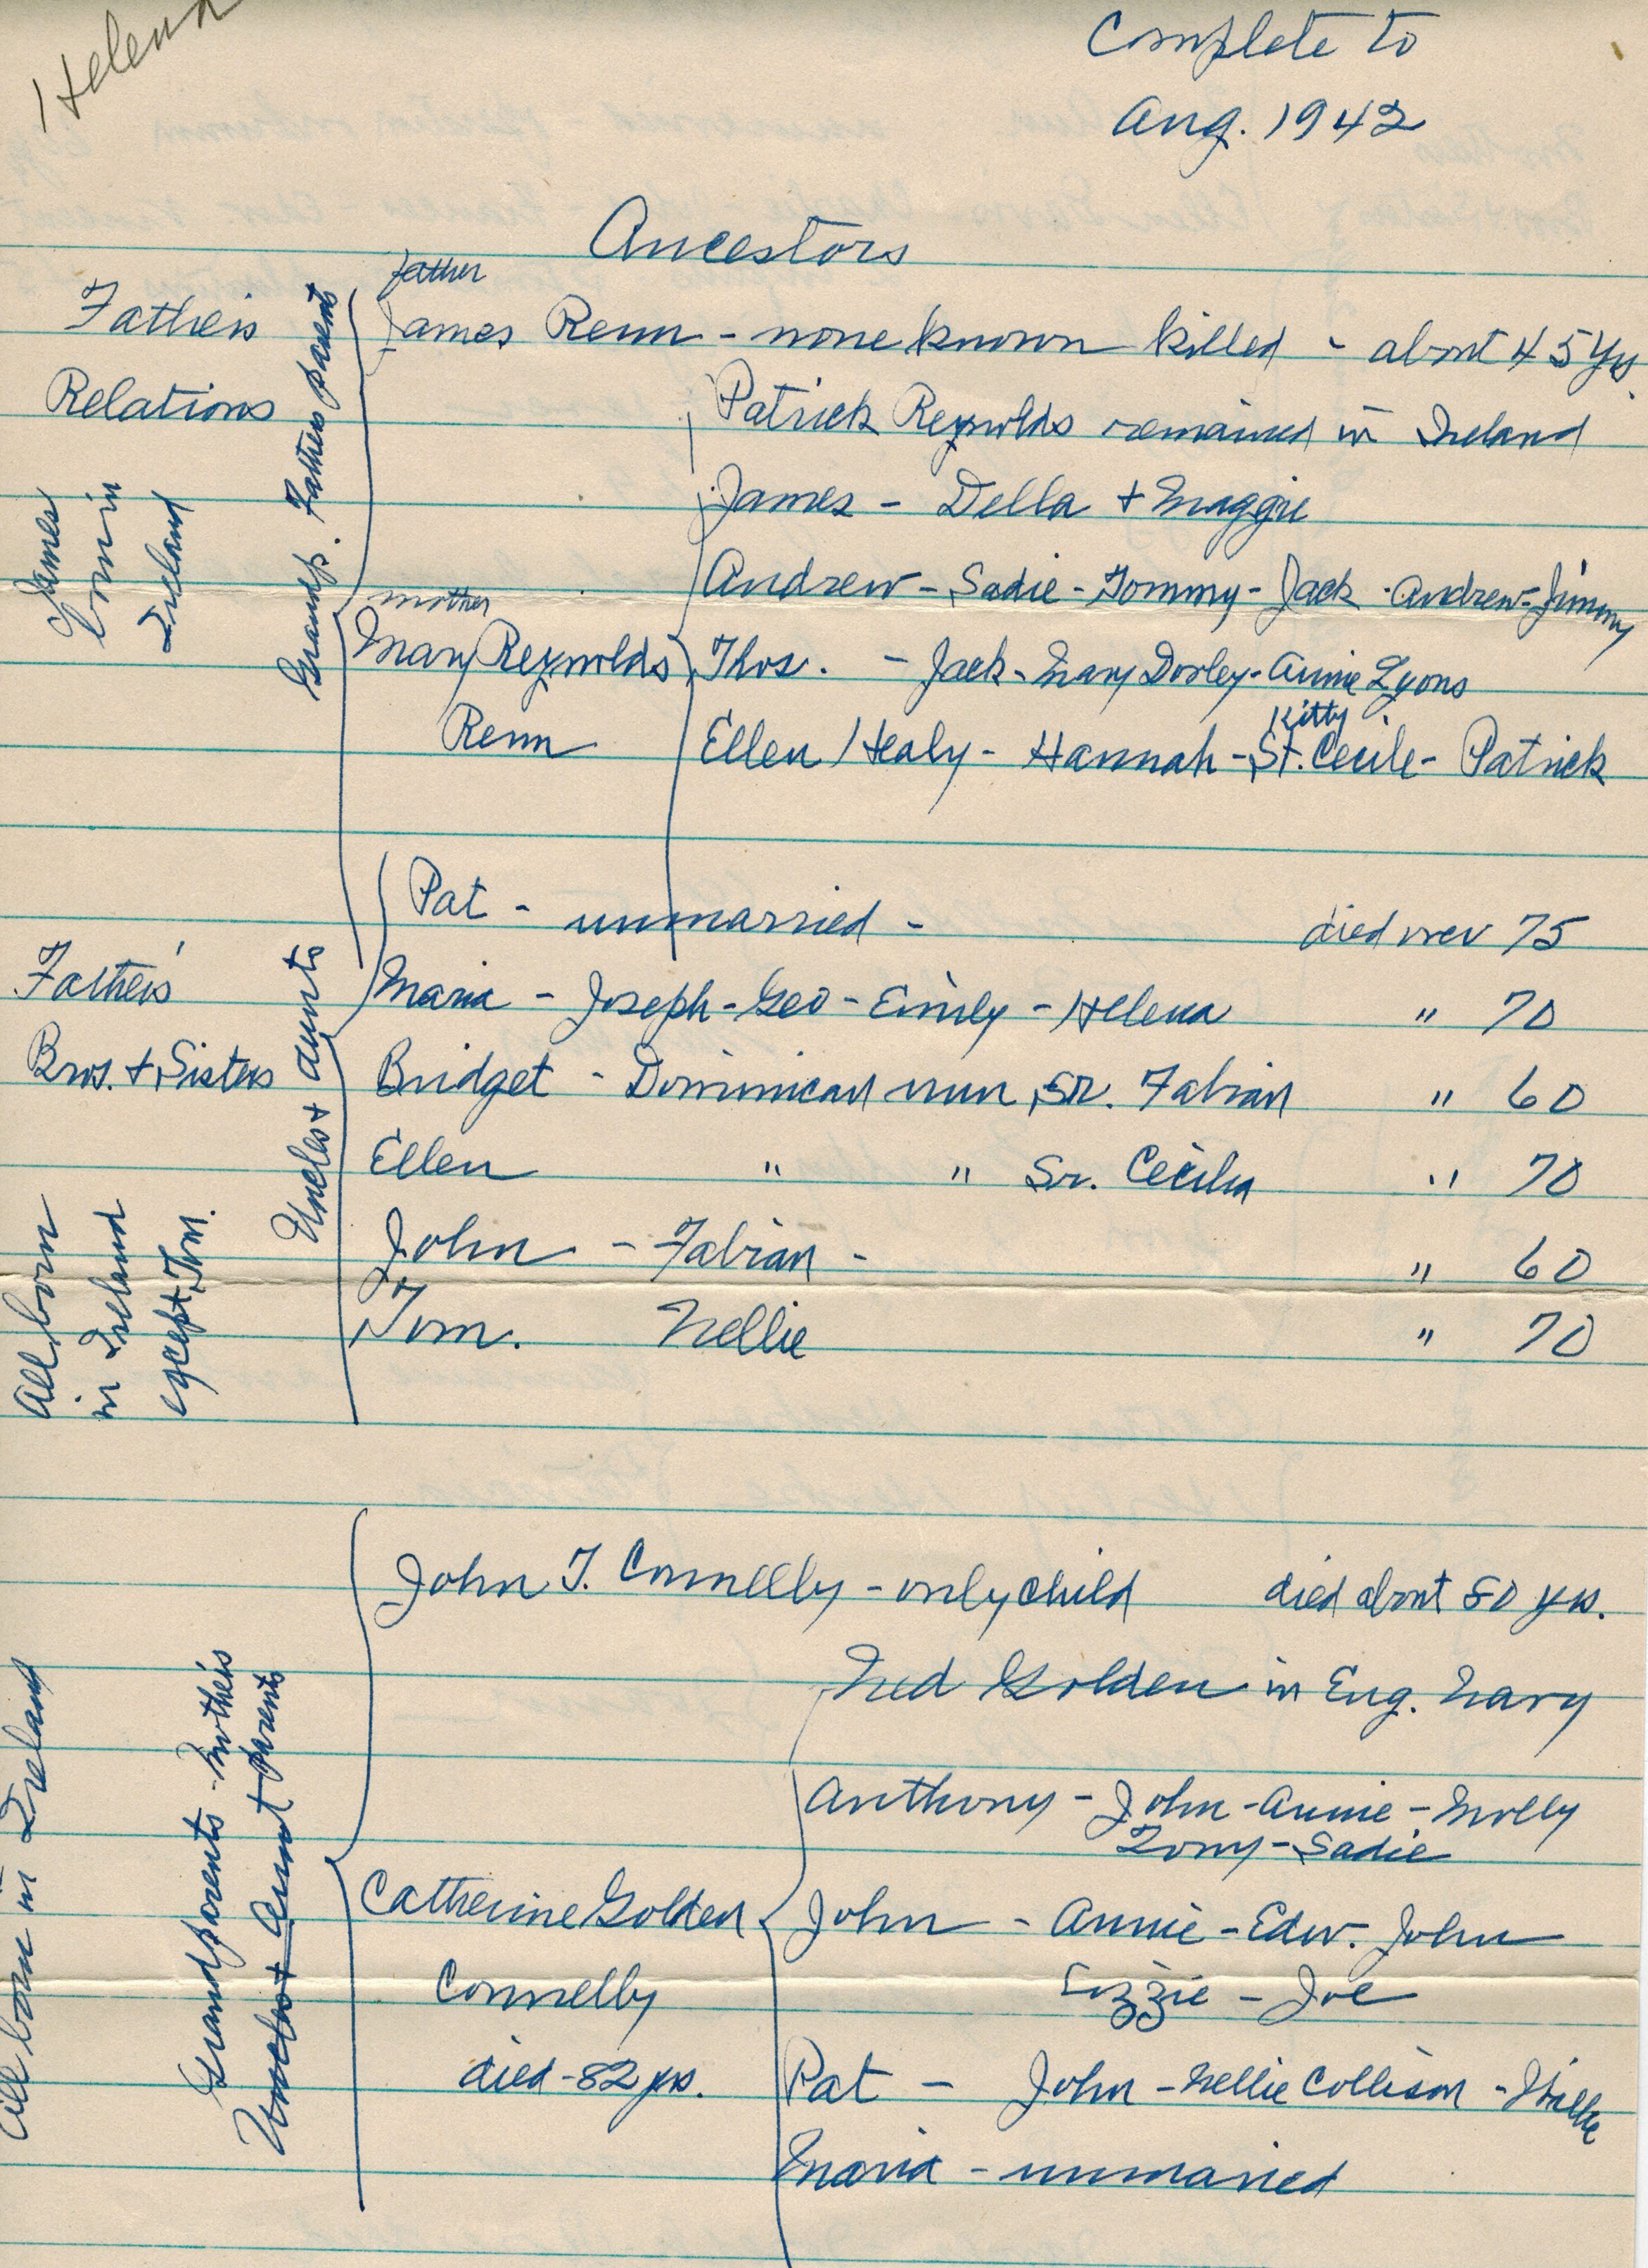 Helena
Complete to
Aug. 1942
Ancestors
Father's Relations
James born in Ireland
Grandp. Fathers parents
father
James Renn - none known killed - about 45 yrs.
Patrick Reynolds remained in Ireland
James - Della + Maggie
Andrew - Sadie - Tommy - Jack - Andrew - Jimmy
mother
Mary Reynolds Renn
Thos. - Jack - Mary Dorley - Annie Lyons
Kitty
Ellen Healy - Hannah - St. Cecile - Patrick
Father's Bros. + Sisters
All born in Ireland except Tom.
Uncles + Aunts
Pat - unmarried - died over 75
Maria - Joseph - Geo - Emily - Helena " 70
Bridget - Dominican nun, Sr. Fabian " 60
Ellen " " Sr. Cecilia " 70
John - Fabian - " 60
Tom. Nellie " 70
All born in Ireland
Grandparents - Mother's parents
Uncles + Aunt
John T. Connelly - only child died about 80 yrs.
Ned Golden in Eng. Navy
Anthony - John - Annie - Molly
Tony - Sadie
Catherine Golden
Connelly
died - 82 yrs.
John - Annie - Edw. John
Lizzie - Joe
Pat - John - Nellie Collison - Willie
Maria - unmarried